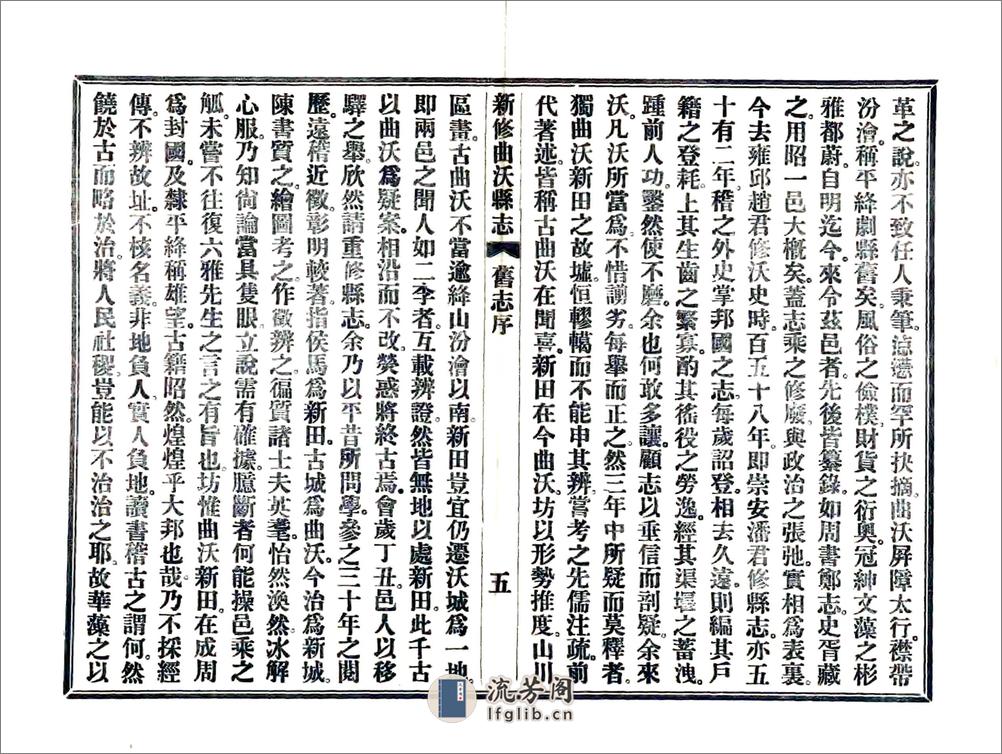 革之說亦不致任人秉筆恣憑而罕所抉摘曲沃屏障太行襟帶
汾澮稱平絳劇縣舊矣風俗之儉樸財貨之衍奧冠紳文藻之彬
雅都蔚自明迄今來令茲邑者先後皆纂錄如周書鄭志史胥藏
之用昭一邑大槪矣蓋志乘之修廢與政治之張弛實相爲表裏
今去雍邱趙君修沃史時百五十八年卽崇安潘君修縣志亦五
十有二年稽之外史掌邦國之志每歲詔登相去久遠則編其戶
籍之登耗上其生齒之繁寡酌其徭役之勞逸經其渠堰之蓄洩
踵前人功鑿然使不磨余也何敢多讓顧志以垂信而刮疑余來
沃凡沃所當爲不惜謭劣每舉而正之然三年中所疑而莫釋者
獨曲沃新田之故墟恒轇轕而不能申其辨嘗考之先儒注疏前
代著述皆稱古曲沃在聞喜新田在今曲沃坊以形勢推度山川
新修曲沃縣志 舊志序 五
區畫古曲沃不當逾絳山汾澮以南新田豈宜仍遷沃城爲一地
即兩邑之聞人如二李者互載辨證然皆無地以處新田此千古
以曲沃爲疑案相沿而不改熒惑將終古焉會歲丁丑邑人以移
驛之舉欣然請重修縣志余乃以平昔所問學參之三十年之閱
歷遠稽近徵彰明較著指侯馬爲新田古城爲曲沃今治爲新城
陳書質之繪圖考之作徵辨之徧質諸士夫英耄怡然渙然冰解
心服乃知尙論當具隻眼立說需有確據臆斷者何能操邑乘之
觚未嘗不往復六雅先生之言之有旨也坊惟曲沃新田在成周
爲封國及隸平絳稱雄望古籍昭然煌煌乎大邦也哉乃不採經
傳不辨故址不核名義非地負人實人負地讀書稽古之謂何然
饒於古而略於治將人民社稷豈能以不治治之耶故華藻之以
流芳阁
lfglib.cn